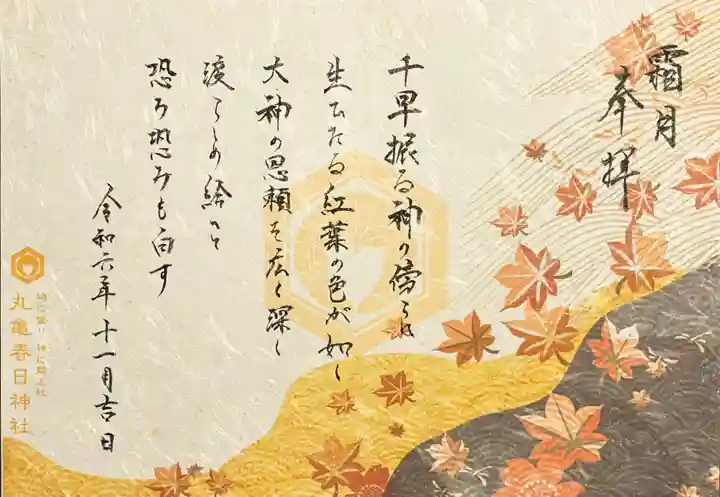 霜月
奉拝
千早振る神の傍らに
生ひたる紅葉の色が如く
大神の恩頼を広く深く
渡らしめ給へと
恐み恐みも白す
令和六年十一月吉日
丸亀春日神社